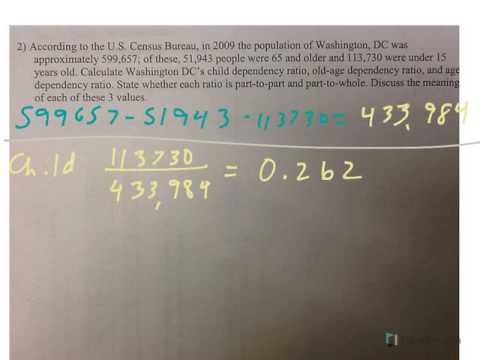 2) According to the U.S. Census Bureau, in 2009 the population of Washington, DC was
approximately 599,657; of these, 51,943 people were 65 and older and 113,730 were under 15
years old. Calculate Washington DC's child dependency ratio, old-age dependency ratio, and age
dependency ratio. State whether each ratio is part-to-part and part-to-whole. Discuss the meaning
of each of these 3 values.
599657-51943-113730=433,984
Child 113730
433,984 = 0.262